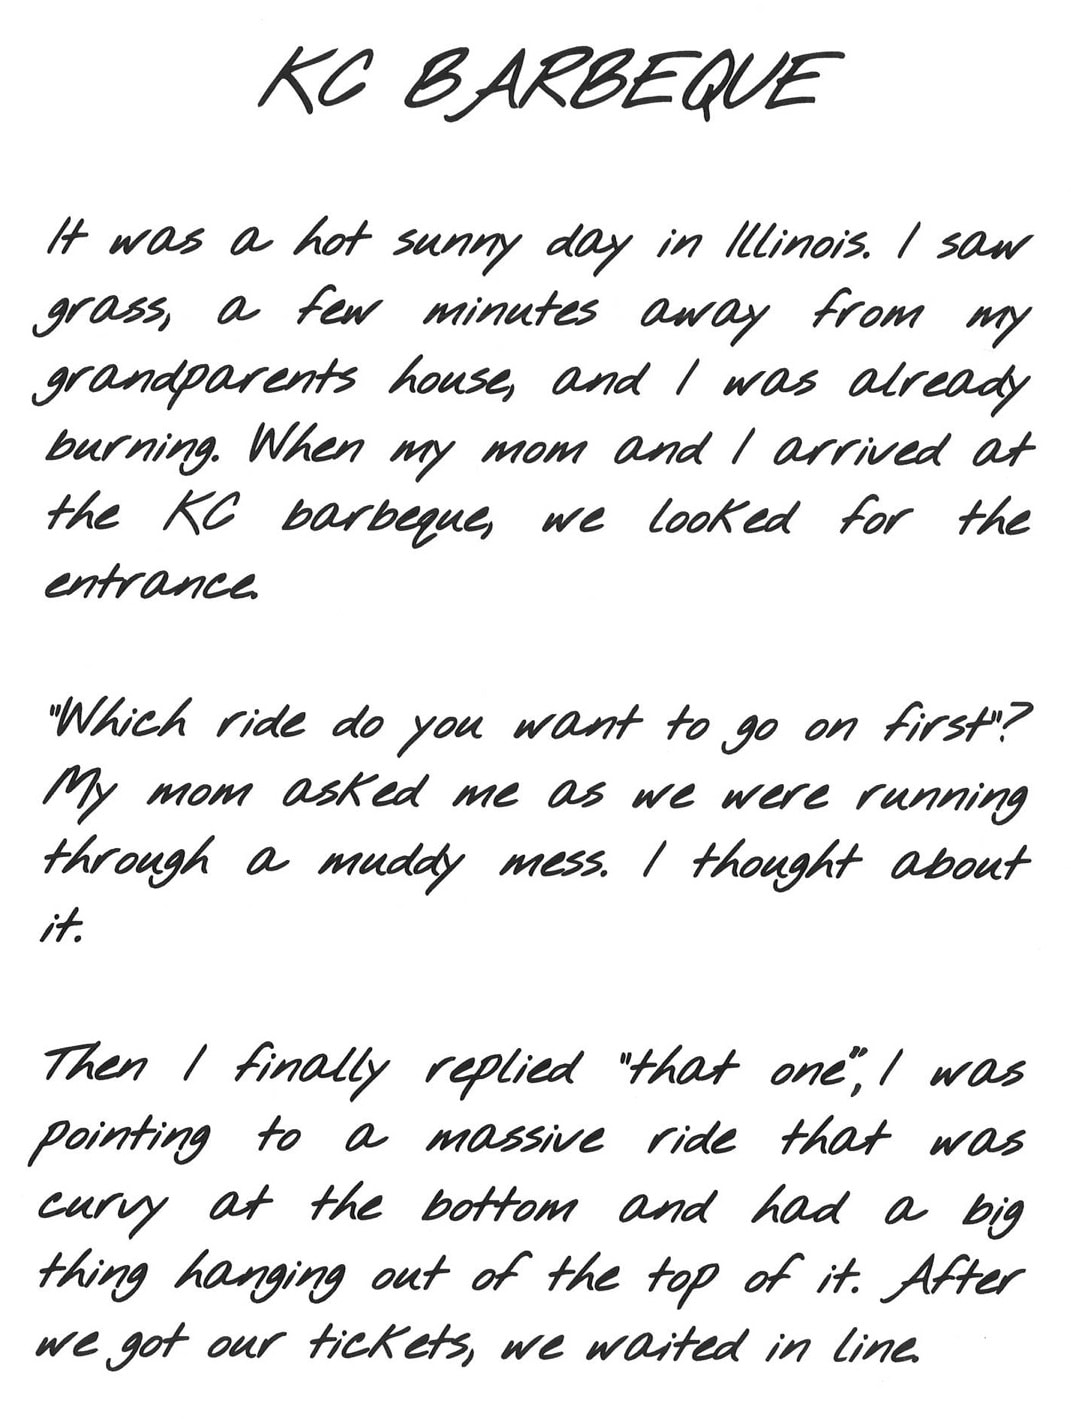 KC BARBEQUE
It was a hot sunny day in Illinois. I saw
grass, a few minutes away from my
grandparents house, and I was already
burning. When my mom and I arrived at
the KC barbeque, we looked for the
entrance.
"Which ride do you want to go on first"?
My mom asked me as we were running
through a muddy mess. I thought about
it.
Then I finally replied "that one", I was
pointing to a massive ride that was
curvy at the bottom and had a big
thing hanging out of the top of it. After
we got our tickets, we waited in line.